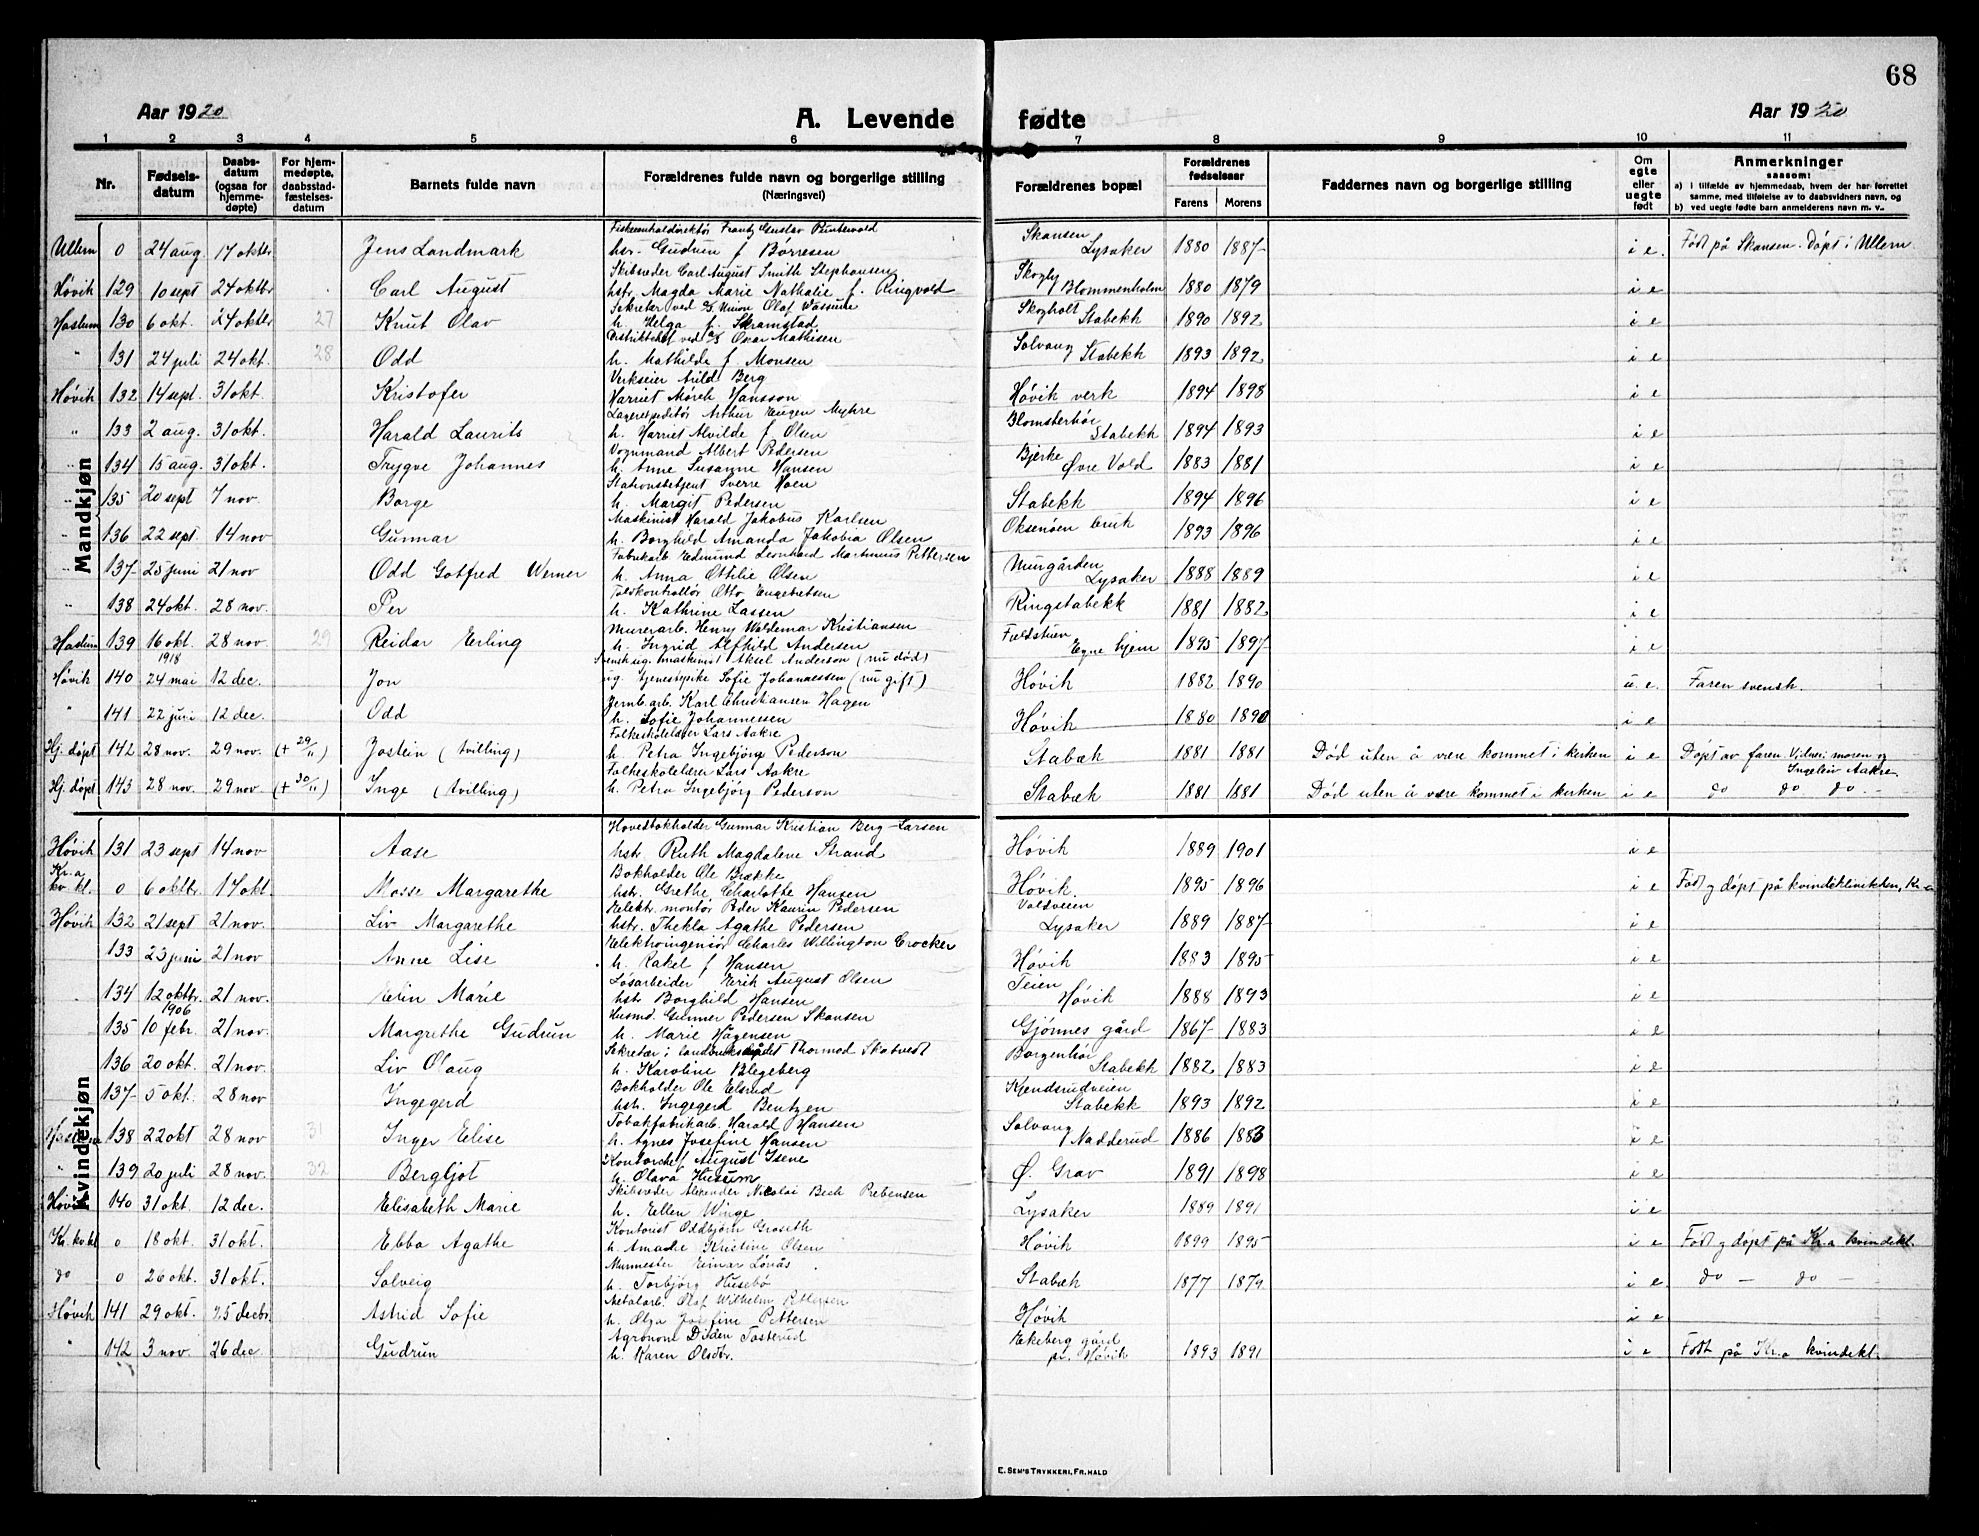 68
Aar 1920 A. Levende fødte Aar 1920
1 2 3 4 5 6 7 8 9 10 11
Nr. Fødselsdatum Daabsdatum (ogsaa for hjemmedøpte) For hjemmedøpte, daabsstadfæstelsesdatum Barnets fulde navn Forældrenes fulde navn og borgerlige stilling (Næringsvei) Forældrenes bopæl Forældrenes fødselsaar Farens Morens Faddernes navn og borgerlige stilling Om egte eller uegte født Anmerkninger saasom: a) i tilfælde av hjemmedaab, hvem der har forrettet samme, med tilføielse av to daabsvidners navn, og b) ved uegte fødte barn anmelderens navn m. v.
Mandkjøn
Ullern 0 24 aug. 17 oktbr Jens Landmark Frantz Gustav hsr. Gudrun f Børresen Skansen Lysaker 1880 1887 i e. Født på Skansen. Døpt i Ullern
Høvik 129 10 sept 24 oktbr Carl August Skibsreder Carl August Smith Stephansen hstr. Magda Marie Nathalie f. Ringvold Skogly Blommenholm 1880 1879 i e
Haslum 130 6 okt. 24 oktbr 27 Knut Olav Sekretær ved Union Olaf h. Helga f. Skramstad Skogholt Stabekk 1890 1892 i e
" 131 24 juli 24 okt. 28 Odd Distriktchef ved Ovar Mathisen h. Mathilde f Monsen Solvang Stabekk 1893 1892 i e
Høvik 132 14 sept. 31 okt. Kristofer Verkseier Arild Berg Harriet Mørch Hansson Høvik verk 1894 1898 i e
" 133 2 aug. 31 okt. Harald Laurits Lagerekspeditør Arthur Eugen Myhre h. Harriet Alvilde f Olsen Blomsterhøi Stabekk 1894 1893 i e
" 134 15 aug. 31 okt. Trygve Johannes Vognmand Albert Pedersen h. Anne Susanne Hansen Bjerke Øvre Vold 1883 1881 i e
" 135 20 sept 7 nov. Borge Stationsbetjent Sverre Hoen h. Margit Pedersen Stabekk 1894 1896 i e
" 136 22 sept. 14 nov Gunnar Maskinist Harald Jakobus Karlsen h. Borghild Amanda Jakobia Olsen Oksenøen bruk 1893 1896 i e
" 137 25 juni 21 nov Odd Gotfred Werner Fabrikarb. Edmund Leonhard Martinius Pettersen h. Anna Ottilie Olsen Murgården Lysaker 1888 1889 i e
" 138 24 okt. 28 nov. Per Otto Engebretsen h. Kathrine Lassen Ringstabekk 1881 1882 i e
Haslum 139 16 okt. 28 nov. 29 Reidar Erling Murerarb. Henry Waldemar Kristiansen h. Ingrid Alfhild Andersen Egne hjem 1895 1897 i e
Høvik 140 1918 24 mai 12 dec. Jon Svensk ug. maskinist Aksel Anderson (nu død) ug. tjenestepike Sofie Johannessen (nu gift) Høvik 1882 1890 u. e. Faren svensk.
" 141 22 juni 12 dec. Odd Jernb. arb. Karl Christiansen Hagen h. Sofie Johannessen Høvik 1880 1890 i e
Hj. døpt 142 28 nov. 29 nov. (+ 29/11) Jostein (tvilling) Folkeskolelærer Lars Aakre h. Petra Ingebjörg Pederson Stabæk 1881 1881 Død uten å være kommet i kirken i e Døpt av faren Vidner: moren og Ingeleiv Aakre.
Hj. døpt 143 28 nov. 29 nov (+ 30/11) Inge (tvilling) Folkeskolelærer Lars Aakre h. Petra Ingebjörg Pederson Stabæk 1881 1881 Død uten å være kommet i kirken i e do do do.
Kvindekjøn
Høvik 131 23 sept 14 nov Aase Hovedbokholder Gunnar Kristian Berg-Larsen hstr. Ruth Magdalene Strand Høvik 1889 1901 i e
Kr.a kv. kl. 0 6 oktbr. 17 okt. Mosse Margarethe Bokholder Ole Brække hstr. Grethe Charlotte Hansen Høvik. 1895 1896 i e Født og døpt på kvindeklinikken, Kr.a
Høvik 132 21 sept 21 nov. Liv Margarethe Elektr. montør Peder Kaurin Pedersen hstr. Thekla Agathe Pedersen Voldveien Lysaker 1889 1887 i e
133 23 juni 21 nov Anne Lise Elektroingeniør Charles Willington Crocker h. Rakel f Hansen Høvik 1883 1895 i e
134 12 oktbr. 21 nov. Elin Marie Løsarbeider Erik August Olsen hstr Borghild Hansen Teien Høvik 1888 1893 i e
135 1906 10 febr. 21 nov. Margrethe Gudrun Husmd. Gunner Pedersen Skansen h. Marie Hagensen Gjønnes gård 1867 1883 i e
136 20 okt. 21 nov. Liv Olaug Sekretær i Thormod Skatvedt h. Karoline Blegeberg Borgenhøi Stabekk 1882 1883 i e
137 5 okt. 28 nov Ingegerd Bokholder Ole Elsrud hstr. Ingegerd Bentzen Kjendsrudveien Stabekk 1893 1892 i e
Haslum 138 22 okt 28 nov 31 Inger Elise Tobakfabrikarb. Harald Hansen h. Agnes Josefine Hansen Solvang Nadderud 1886 1883 i e
" 139 20 juli 28 nov. 32 Bergljot Kontorchef August Isene h. Olava Husum Ø. Grav 1891 1898 i e
Høvik 140 31 okt. 12 dec. Elisabeth Marie Skibsreder Alexander Nikolai Bech Prebensen h. Ellen Winge Lysaker 1889 1891 i e
Kr. kv. kl 0 18 okt. 31 okt. Ebba Agathe Kontorist Oddbjørn Groseth h. Amalie Kristine Olsen Høvik 1899 1895 i e Født og døpt på Kr.a kvindekl.
do 0 26 okt. 31 okt. Solveig Murmester Einar Lönås h. Torbjörg Husebö Stabæk 1877 1879 i e. do — do —
Høvik 141 29 okt. 25 decbr Astrid Sofie Metalarb. Olaf Wilhelm Pettersen h. Olga Josefine Pettersen Høvik i e
" 142 3 nov. 26 dec Gudrun Agronom Didén Tosterud h. Karen Olsdtr. Ekeberg gård pr. Høvik 1893 1891 i e Født på Kr.a kvindekl.
E. SEM'S TRYKKERI, FR.HALD